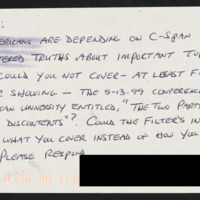 ERICANS ARE DEPENDING ON C-SPAN
TERED TRUTHS ABOUT IMPORTANT
COULD YOU NOT COVER - AT LEAST F
R SHOWING - THE 5-13-99 CONFERENC
CAN UNIVERSITY ENTITLED, "THE TWO PART
DISCONTENTS"? COULD THE FILTER'S IN
WHAT YOU COVER INSTEAD OF HOW YOU
PLEASE RESPOND